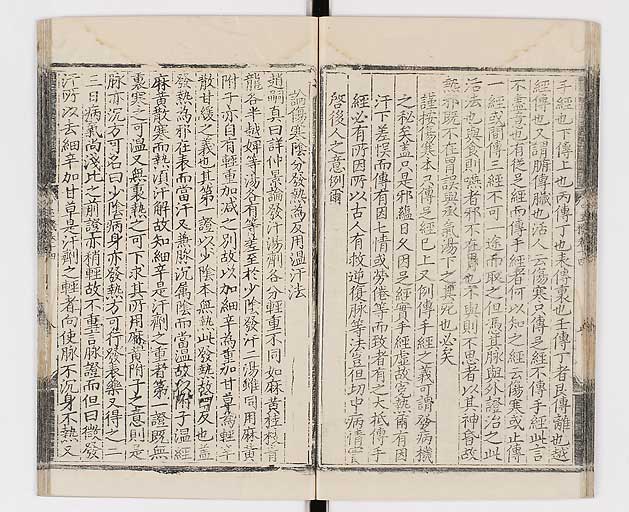 手經也下傳上也丙傳丁也表傳裏也壬傳丁者艮傳離也越
經傳也又謂腑傳臟也活人云傷寒只傳足經不傳手經此言
不盡意也有從足經而傳手經者何以知之經云傷寒或止傳
一經或間傳三經不可一途而取之但憑其脈與外證治之此
活法也與食則嚥者邪不在胃也不與則不思者以其神昏故
熱邪既不在胃誤與承氣湯下之其死也必矣
謹按傷寒本只傳足經已上又例傳手經之義可謂發病機
之秘矣盖只是邪蘊日久因足經實手經虛故宼熱爾有因
汗下差悞而傳有因七情或勞倦等而致者有之大抵傳手
經必有所因所以古人有救逆復脉等法豈但切中病情實
啓後人之意例爾
論傷寒陰分發熱為反用溫汗法
趙嗣真曰詳仲景論發汗湯劑各分輕重不同如麻黄桂枝青
龍各半越婢等湯各有等差至於少陰發汗二湯雖同用麻黄
附子亦自有輕重加减之別故以加細辛為重加甘草為輕辛
散甘緩之義也其第一證以少陰本無熱此發熱故曰反也盖
發熱為邪在表而當汗又兼脉沉屬陰而當溫故以附子溫經
麻黄散寒而熱湏汗解故加細辛是汗劑之重者第二證既無
裏寒之可溫又無裏熱之可下求其所用麻黄附子之意則是
脉亦沉方可名曰少陰病身亦發熱方可行發表藥又得之二
三日病氣尚淺比之前證亦稍輕故不重言脉證而但曰微發
汗所以去細辛加甘草是汗劑之輕者向使脉不沉身不熱又